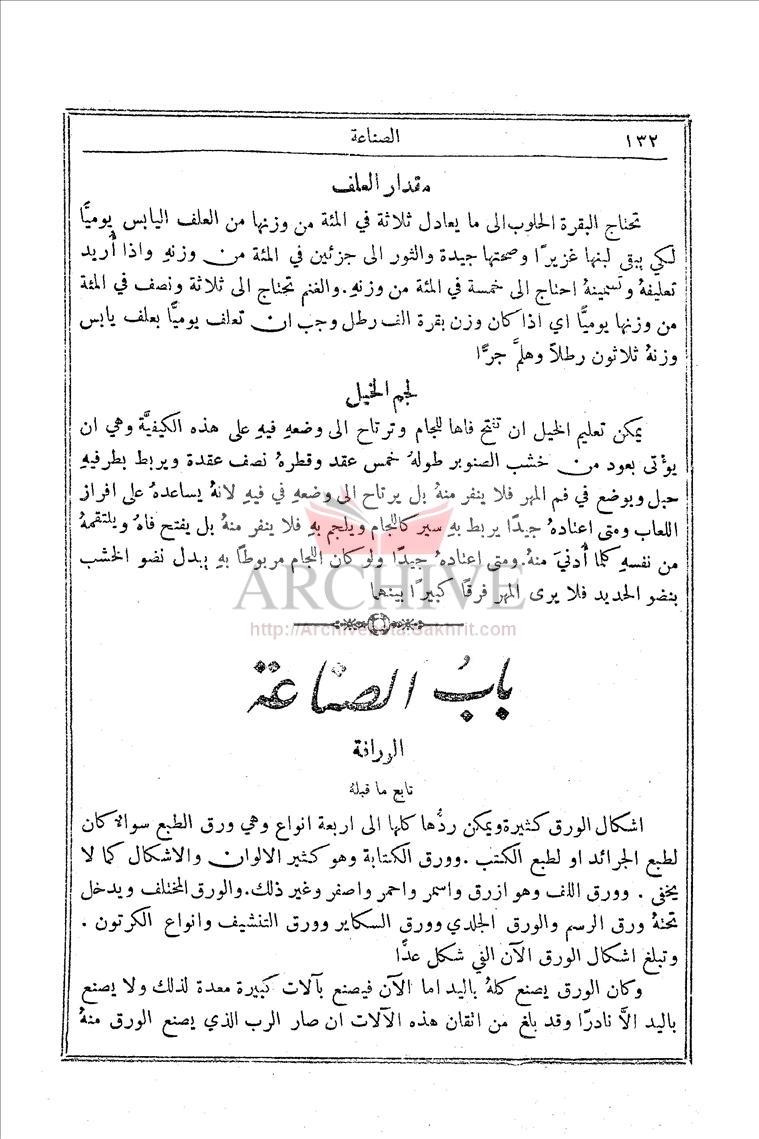 ١٣٢
الصناعة
مقدار العلف
تحتاج البقرة الحلوب الى ما يعادل ثلاثة في المئة من وزنها من العلف اليابس يوميًّا
لكي يبقى لبنها غزيرًا وصحتها جيدة والثور الى جزئين في المئة من وزنهِ واذا أُريد
تعليفهُ وتسمينهُ احتاج الى خمسة في المئة من وزنهِ. والغنم تحتاج الى ثلاثة ونصف في المئة
من وزنها يوميًّا اي اذا كان وزن بقرة الف رطل وجب ان تعلف يوميًّا بعلف يابس
وزنهُ ثلاثون رطلاً وهلمَّ جرًّا
لجم الخيل
يمكن تعليم الخيل ان تفتح فاها للجام وترتاح الى وضعهِ فيهِ على هذه الكيفيَّة وهي ان
يؤتى بعود من خشب الصنوبر طولهُ خمس عقد وقطرهُ نصف عقدة ويربط بطرفيهِ
حبل ويوضع في فم المهر فلا ينفر منهُ بل يرتاح الى وضعهِ في فيهِ لانهُ يساعدهُ على افراز
اللعاب ومتى اعتادهُ جيدًا يربط بهِ سير كاللجام ويلجم بهِ فلا ينفر منهُ بل يفتح فاهُ ويلتقمهُ
من نفسهِ كلما أُدني منهُ. ومتى اعتادهُ جيدًا ولو كان اللجام مربوطًا بهِ يبدل نضو الخشب
بنضو الحديد فلا يرى المهر فرقًا كبيرًا بينهما
ARCHIVE
http://Archivebeta.Sakhrit.com
بابُ الصناعة
الوراقة
تابع ما قبلهُ
اشكال الورق كثيرة ويمكن ردُّها كلها الى اربعة انواع وهي ورق الطبع سوالا كان
لطبع الجرائد او لطبع الكتب. وورق الكتابة وهو كثير الالوان والاشكال كما لا
يخفى. وورق اللف وهو ازرق واسمر واحمر واصفر وغير ذلك. والورق المختلف ويدخل
تحتهُ ورق الرسم والورق الجلدي وورق السكاير وورق التنشيف وانواع الكرتون.
وتبلغ اشكال الورق الآن الفي شكل عدًّا
وكان الورق يصنع كلهُ باليد اما الآن فيصنع بآلات كبيرة معدة لذلك ولا يصنع
باليد الاَّ نادرًا وقد بلغ من اتقان هذه الآلات ان صار الرب الذي يصنع الورق منهُ